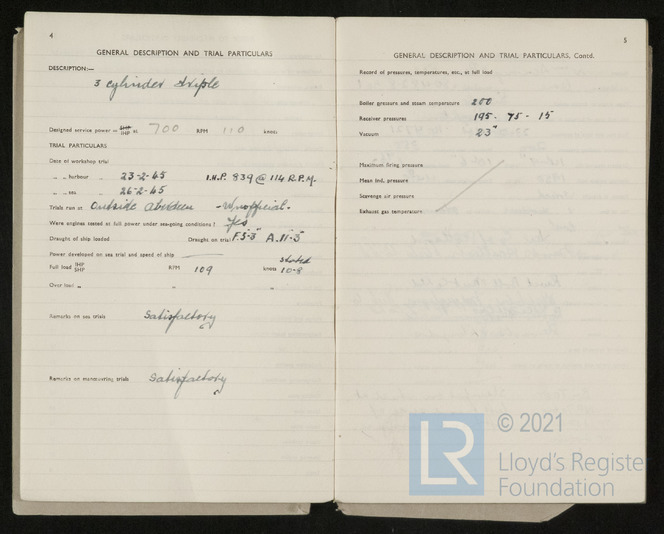 4
GENERAL DESCRIPTION AND TRIAL PARTICULARS
DESCRIPTION:—
3 cylinder triple
Designed service power — SHP IHP at 700 RPM 110 knots
TRIAL PARTICULARS
Date of workshop trial
„ „ harbour „ 23-2-45 I.H.P. 839 @ 114 R.P.M.
„ „ sea „ 26-2-45
Trials run at Outside Aberdeen - Unofficial -
Were engines tested at full power under sea-going conditions? Yes
Draught of ship loaded Draught on trial F.5-3" A.11-3"
Power developed on sea trial and speed of ship
Full load IHP SHP RPM 109 knots stated 10-8
Over load „ „ „
Remarks on sea trials Satisfactory
Remarks on manœuvring trials Satisfactory
5
GENERAL DESCRIPTION AND TRIAL PARTICULARS, Contd.
Record of pressures, temperatures, etc., at full load
Boiler pressure and steam temperature 200
Receiver pressures 195 - 75 - 15
Vacuum 23"
Maximum firing pressure
Mean ind. pressure
Scavenge air pressure
Exhaust gas temperature
LR
© 2021
Lloyd's Register
Foundation